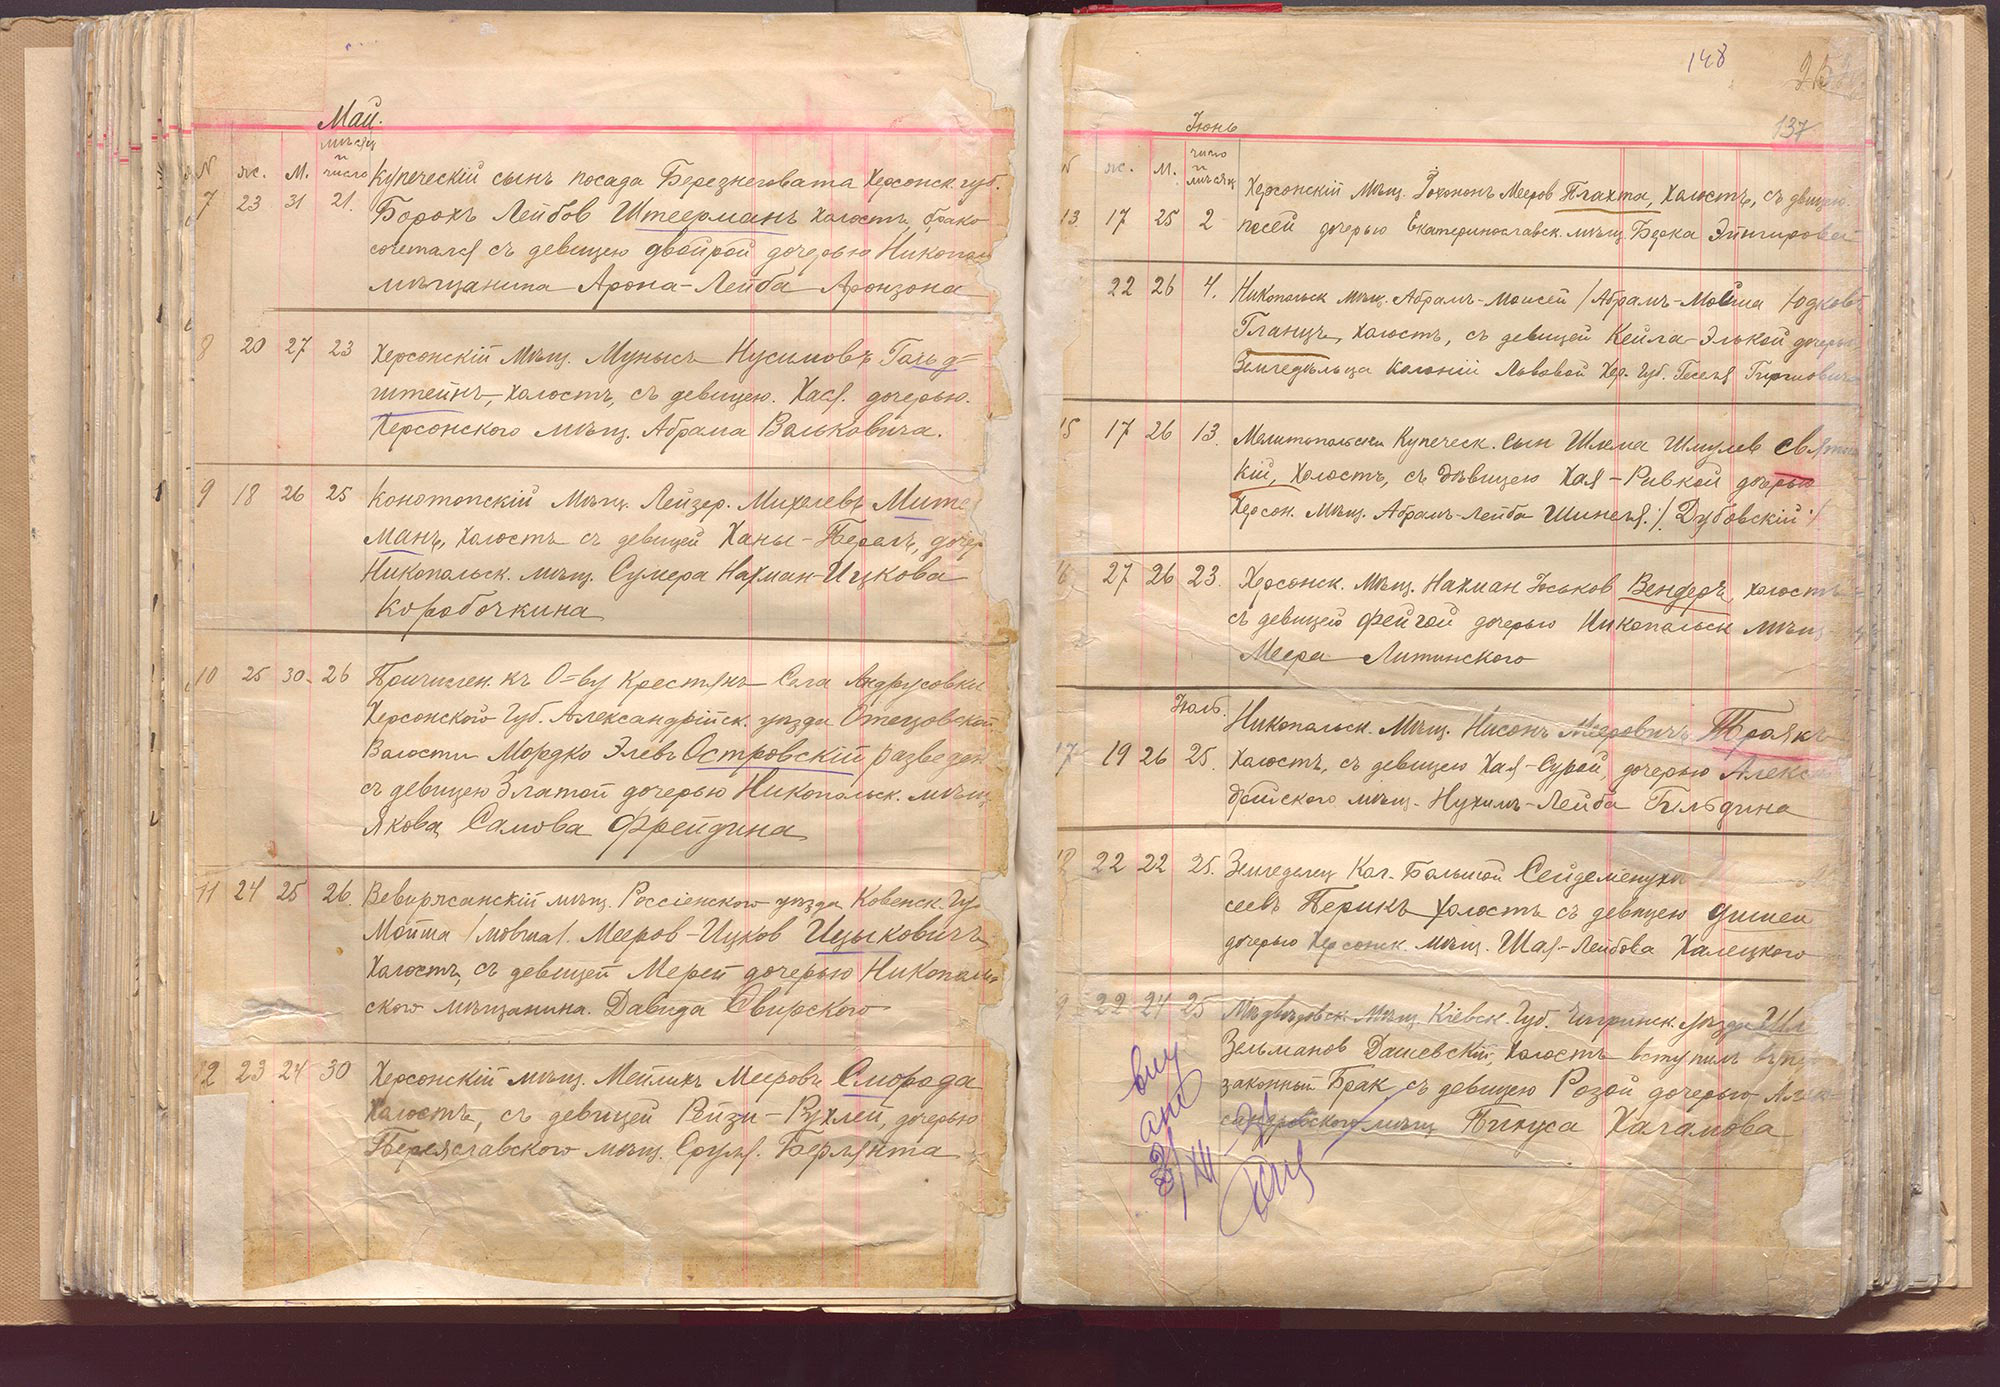 Май.
№ ж. М. мѣсяц и число
Купеческій сынъ посада Березнеговата Херсонск. губ.
7 23 31 21. Борохъ Лейбов Штеерманъ холостъ, брако
сочетался съ девицею Двойрой дочерью Никопол
мѣщанина Арона-Лейба Аронзона
8 20 27 23 Херсонскій Мѣщ. Мунысъ Нусимовъ Гольд=
штейнъ, холостъ, съ девицею. Хая. дочерью.
Херсонского мѣщ. Абрама Вольковича.
9 18 26 25 Конотопскій Мѣщ. Лейзер. Михелевъ Мите
манъ, холостъ съ девицей Ханы-Перлъ, дочер
Никопольск. мѣщ. Сумера Нахман-Ицкова
Коробочкина
10 25 30 26 Причислен. къ О=ву Крестянъ Села Андрусовки
Херсонского Губ. Александрійск. уезда Отецовской
Волости Мордко Элевъ Островскій разведен
съ девицею Златой дочерью Никопольск. мѣщ
Якова Самова Фрейдина
11 24 25 26. Вевиржанскій мѣщ. Россіенского уезда Ковенск. Гу
Мойша /мовша/. Мееров-Ицков Ицыковичъ
Холостъ, съ девицей Мерей дочерью Никополь
ского мѣщанина. Давида Свирского
12 23 24 30 Херсонскій мѣщ. Мейлихъ Мееровъ Сморода
Холостъ, съ девицей Рейзи-Рухлей, дочерью
Переяславского мѣщ. Сруля. Берлянта
148
137
Іюнь
№ ж. М. число и мѣсяц
Херсонскій мѣщ. Іохононъ Мееров Плахта, Холостъ, съ двицею
13 17 25 2 Песей дочерью Екатеринославск. мѣщ. Берка Эйнгоровой
22 26 4. Никопольск мѣщ. Абрамъ-Моисей /Абрамъ-Мовша Юдков
Гланцъ, холостъ, съ девицей Кейла-Элькой дочерью
Земледѣльца Колоніи Львовой Хер. Губ. Геселя Гиршовича
15 17 26 13. Мелитопольскій Купеческ. сын Шлема Шмулев Святи
кій, холостъ, съ дѣвицею Хая-Ривкой дочерью
Херсон. мѣщ. Абрамъ-Лейба Шинеля /. Дубовскій /
16 27 26 23. Херсонск. мѣщ. Нахман Іоськов Вендеръ, холостъ
съ девицей Фейгой дочерью Никопольск мѣщ
Меера Литинского
Іюль.
Никопольск. Мѣщ. Нисонъ Мееровичъ Траякъ
17 19 26 25. Холостъ, съ девицею Хая-Сурой, дочерью Алекса
дрійского мѣщ. Нухимъ-Лейба Бильдина
18 22 22 25. Земледелец Кол. Большой Сейдеменухи
сеевъ Перикъ холостъ съ девицею
дочерью Херсонск. мѣщ. Шая-Лейбова Халецкого
19 22 24 25 Медведовск. мѣщ. Кіевск. Губ. Чигринск. уезда Шл
Зельманов Дашевскій, холостъ вступилъ въ
законный Брак съ девицею Розой дочерью Алек=
сандровского мѣщ Пинуса Хачамова